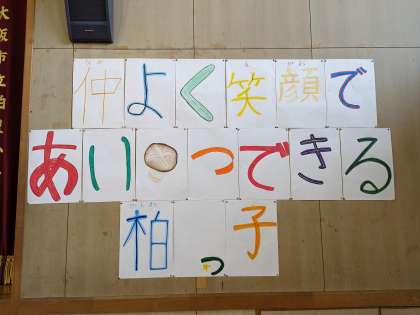 大阪市立柏里小
仲よく笑顔で
あいつできる
柏っ子